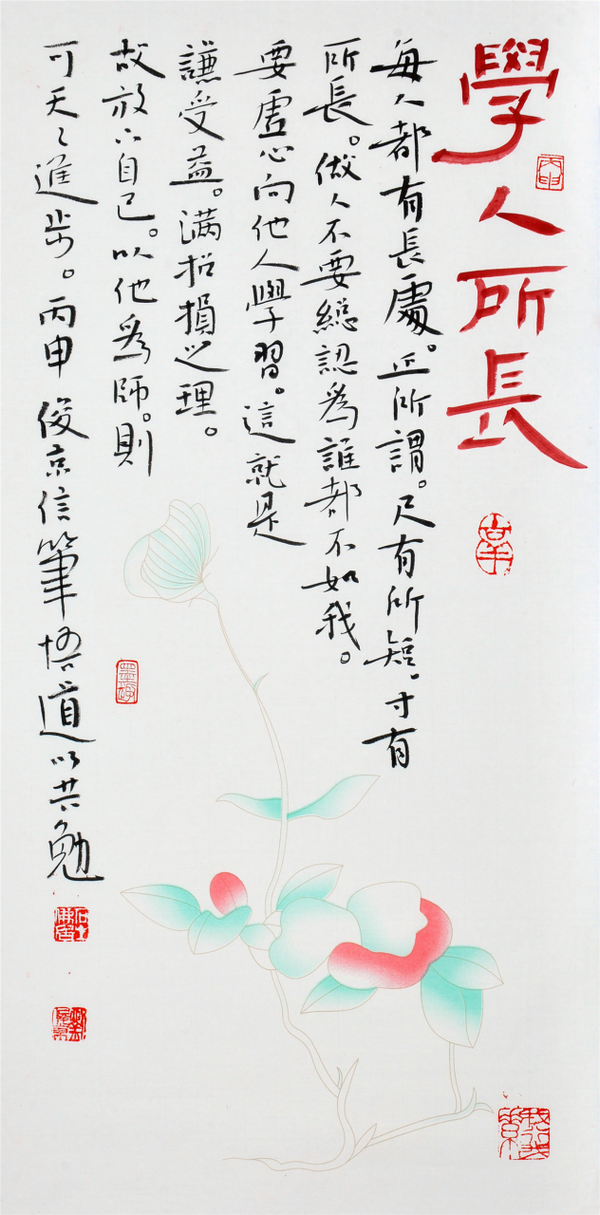 學人所長
丙申
每人都有長處。正所謂。尺有所短。寸有
所長。做人不要總認為誰都不如我。
要虛心向他人學習。這就是
謙受益。滿招損之理。
故放下自己。以他為師。則
可天〻進步。丙申 俊京信筆悟道以共勉